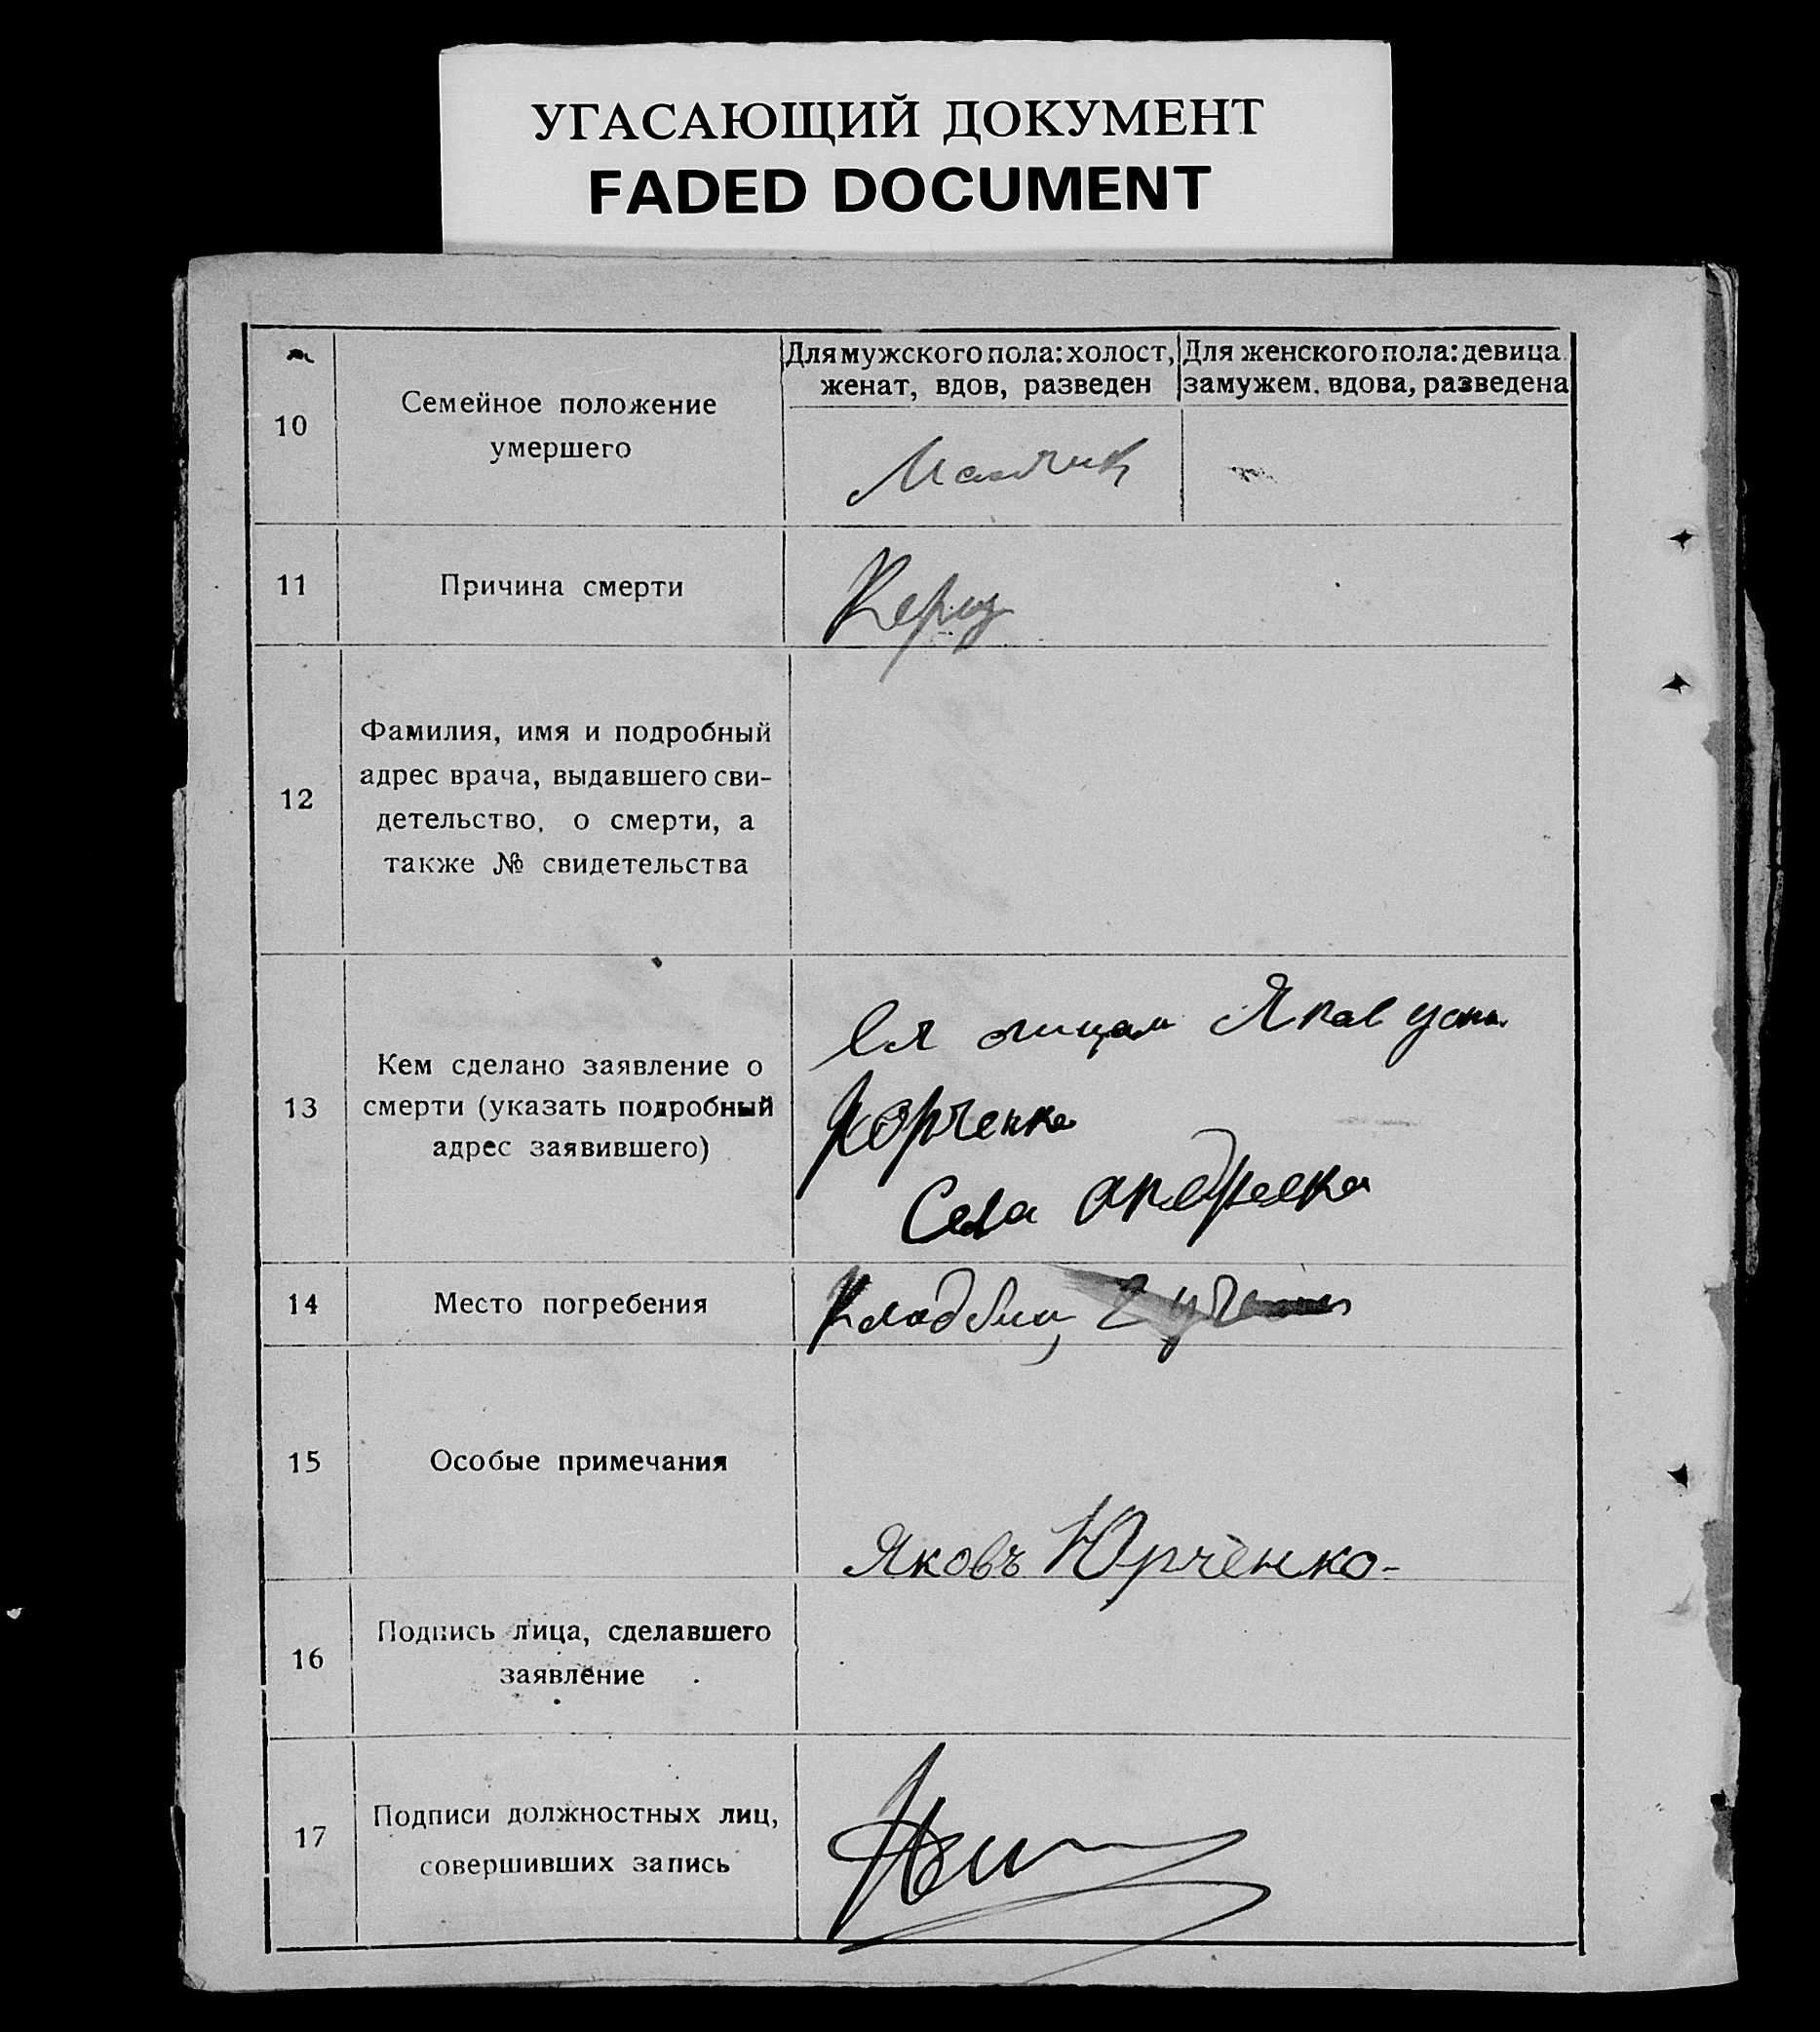 УГАСАЮЩИЙ ДОКУМЕНТ
FADED DOCUMENT
10
Семейное положение
умершего
Для мужского пола: холост,
женат, вдов, разведен
Для женского пола: девица
замужем, вдова, разведена
Малчик
11
Причина смерти
12
Фамилия, имя и подробный
адрес врача, выдавшего сви-
детельство, о смерти, а
также № свидетельства
13
Кем сделано заявление о
смерти (указать подробный
адрес заявившего)
Яков
Юрченко
Села
14
Место погребения
Кладбищ
15
Особые примечания
Яковъ Юрченко
16
Подпись лица, сделавшего
заявление
17
Подписи должностных лиц,
совершивших запись